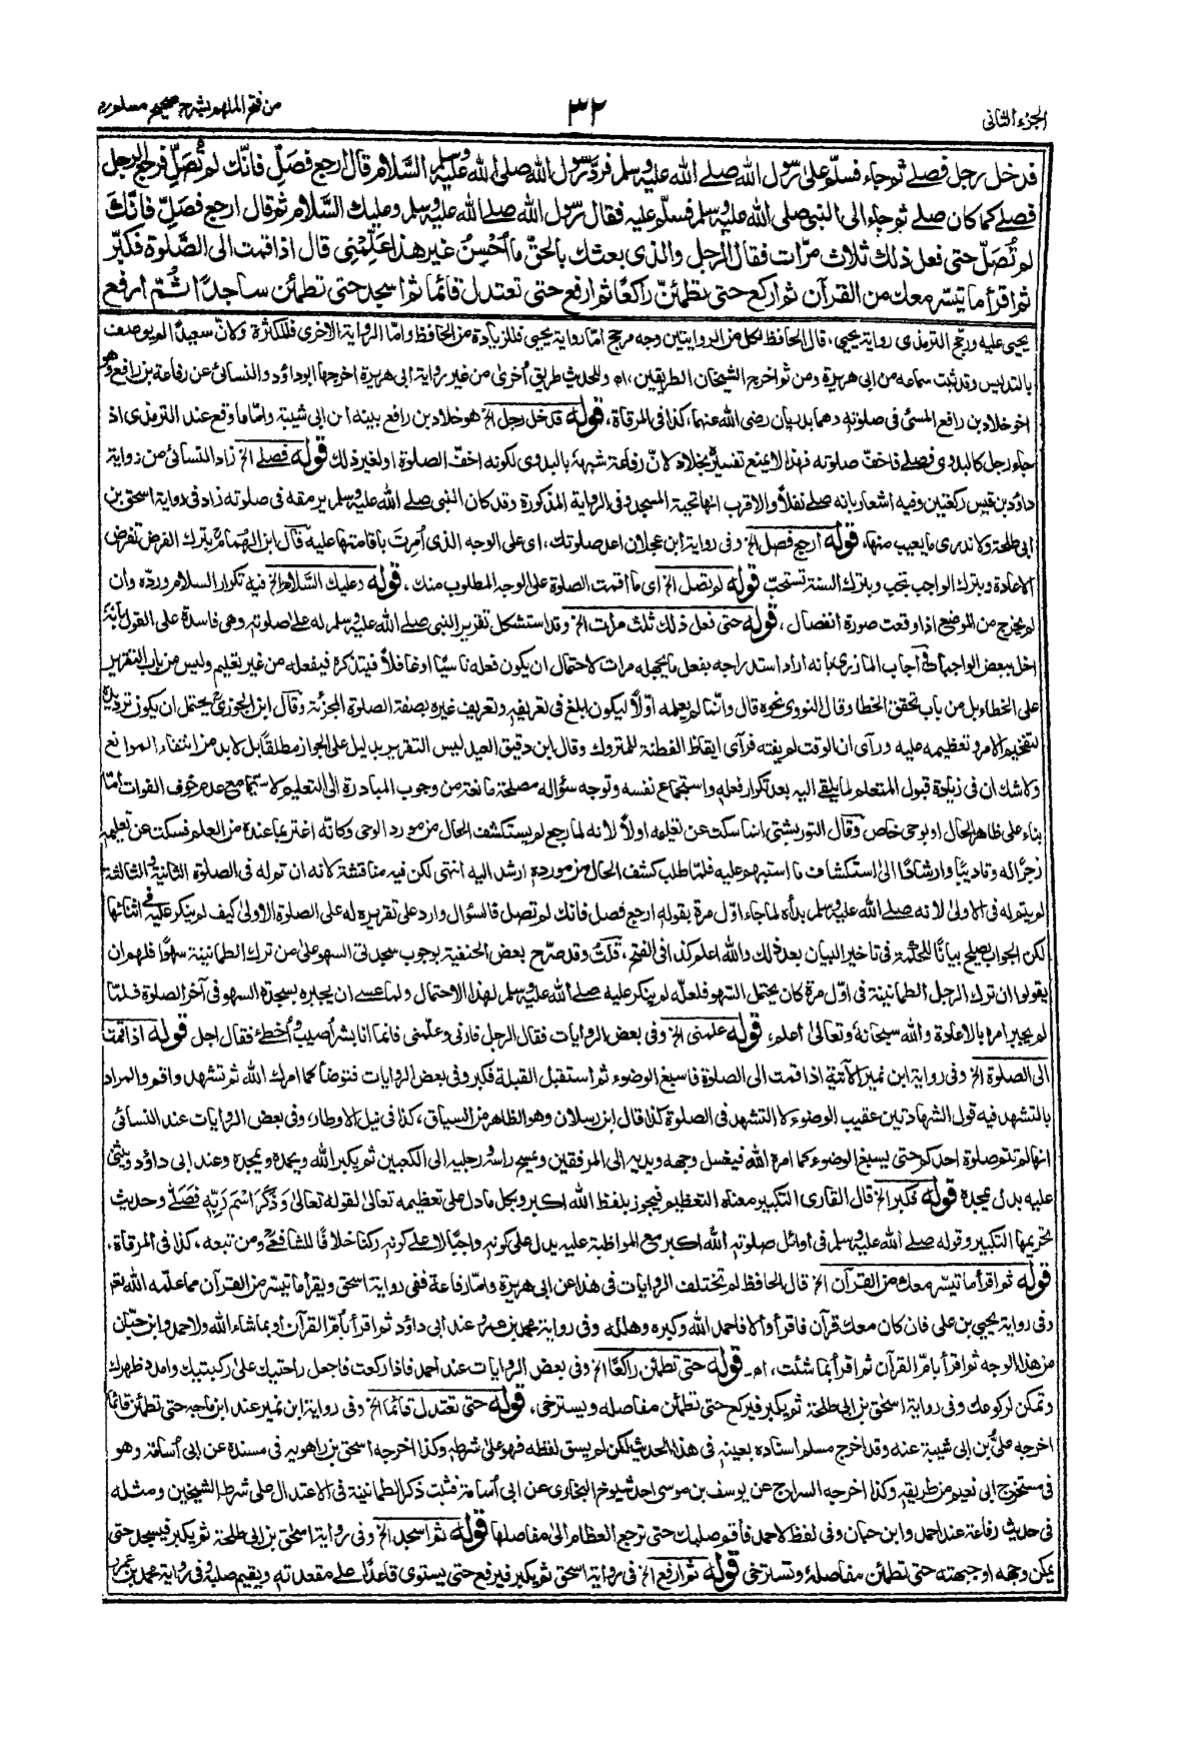 الجزء الثانى
٣٢
من فتح الملهم بشرح صحيح مسلم
فدخل رجل فصلے ثم جاء فسلّم على رسول الله صلے الله عليه وسلم فردّ رسول الله صلى الله عليه وسلم السّلام قال ارجع فصَلِّ فانّك لم تُصَلِّ فرجع الرجل
فصلے كما كان صلے ثم جاء الى النبي صلى الله عليه وسلم فسلّم عليه فقال رسول الله صلے الله عليه وسلم وعليك السّلام ثم قال ارجع فصَلِّ فانّك
لم تُصَلِّ حتى فعل ذلك ثلاث مرّات فقال الرجل والذى بعثك بالحقّ ما أُحْسِنُ غير هذا عَلِّمْنِى قال اذا قمت الى الصَّلوة فكبّر
ثم اقرأ ما تيسّر معك من القرآن ثم اركع حتى تطمئنّ راكعًا ثم ارفع حتى تعتدل قائمًا ثم اسجد حتى تطمئن ساجدًا ثُمّ ارفع
يحيى عليه ورجّح الترمذى رواية يحيى، قال الحافظ لكل من الروايتين وجه مرجح امّا رواية يحيى فللزيادة من الحافظ وامّا الرواية الاخرى فللكثرة ولانّ سعيدًا لم يوصف
بالتدليس وقد ثبت سماعه من ابى هريرة ومن ثم اخرج الشيخان الطريقين، اه وللحديث طريق أخرى من غير رواية ابى هريرة اخرجها ابو داؤد والنسائى عن رفاعة بن رافع وهو
اخو خلاد بن رافع المسئ فى صلوته وهما بدريان رضى الله عنهما، كذا فى المرقاة، قوله فدخل رجل الخ هو خلاد بن رافع بينه ابن ابى شيبة وامّا ما وقع عند الترمذى اذ
جاء رجل كالبدوى فصلے فاخفّ صلوته فهذا لا يمنع تفسيره بخلاد لانّ رفاعة شبهه بالبدوى لكونه اخفّ الصلوة او لغير ذلك قوله فصلے الخ زاد النسائى من رواية
داؤد بن قيس ركعتين وفيه اشعار بانه صلے نفلًا والاقرب انها تحية المسجد وفى الرواية المذكورة وقد كان النبى صلے الله عليه وسلم يرمقه فى صلوته زاد فى رواية اسحق بن
ابى طلحة ولا ندرى ما يعيب منها، قوله ارجع فصل الخ وفى رواية ابن عجلان اعد صلوتك، اى على الوجه الذى أُمِرتَ باقامتها عليه قال ابن الهُمام بترك الفرض تفرض
الاعادة وبترك الواجب تجب وبترك السنة تستحبّ قوله لم تصل الخ اى ما اقمت الصلوة على الوجه المطلوب منك، قوله وعليك السّلام الخ فيه تكرار السلام وردّه وان
لم يخرج من الموضع اذا وقعت صورة انفصال، قوله حتى فعل ذلك ثلث مرات الخ وقد استشكل تقرير النبى صلے الله عليه وسلم له على صلوته وهى فاسدة على القول بانه
اخل ببعض الواجبات اجاب المازرى بانه اراد استدراجه بفعل ما يجهله مرات لاحتمال ان يكون فعله ناسيًا او غافلًا فيتذكره فيفعله من غير تعليم وليس من باب التقرير
على الخطا بل من باب تحقق الخطا وقال النووى نحوه قال وانّما لم يعلمه اوّلًا ليكون ابلغ فى تعريفه وتعريف غيره بصفة الصلوة المجزئة وقال ابن الجوزى يحتمل ان يكون ترديده
لتفخيم الامر وتعظيمه عليه ورآى ان الوقت لم يفته فرآى ايقاظ الفطنة للمتروك وقال ابن دقيق العيد ليس التقرير بدليل على الجواز مطلقًا بل لا بد من انتفاء الموانع
ولا شك ان فى زيادة قبول المتعلم لما يلقى اليه بعد تكرار فعله واستجماع نفسه وتوجه سؤاله مصلحة مانعة من وجوب المبادرة الى التعليم لا سيّما مع عدم خوف الفوات امّا
بناء على ظاهر الحال او بوحى خاص وقال التوربشتى انما سكت عن تعليمه اولًا لانه لما رجع لم يستكشف الحال من مورد الوحى وكانّه اغتر بما عنده من العلم فسكت عن تعليمه
زجرًا له وتاديبًا وارشادًا الى استكشاف ما استبهم عليه فلمّا طلب كشف الحال من مورده ارشد اليه انتهى لكن فيه مناقشة لانه ان تم له فى الصلوة الثانية والثالثة
لم يتم له فى الاولى لانه صلے الله عليه وسلم بدأه لما جاء اوّل مرة بقوله ارجع فصل فانك لم تصل فالسؤال وارد على تقريره له على الصلوة الاولى كيف لم ينكر عليه فى اثنائها
لكن الجواب يصلح بيانًا للحكمة فى تاخير البيان بعد ذلك والله اعلم كذا فى الفتح، قلتُ وقد صرّح بعض الحنفية بوجوب سجدتى السهو على من ترك الطمانينة سهوًا فلهم ان
يقولوا ان ترك الرجل الطمانينة فى اوّل مرة كان يحتمل السّهو فلعلّه لم ينكر عليه صلے الله عليه وسلم لهذا الاحتمال ولما عسى ان يجبره بسجدة السهو فى آخر الصلوة فلمّا
لم يجبر امره بالاعادة والله سبحانه وتعالى أعلم، قوله علمنى الخ وفى بعض الروايات فقال الرجل فارنى وعلّمنى فانما انا بشر أصيب وأخطئ فقال اجل قوله اذا قمت
الى الصلوة الخ وفى رواية ابن نمير الآتية اذا قمت الى الصلوة فاسبغ الوضوء ثم استقبل القبلة فكبر وفى بعض الروايات فتوضأ كما امرك الله ثم تشهد واقم والمراد
بالتشهد فيه قول الشهادتين عقيب الوضوء لا التشهد فى الصلوة كذا قال ابن رسلان وهو الظاهر من السياق، كذا فى نيل الاوطار، وفى بعض الروايات عند النسائى
انها لم تتم صلوة احدكم حتى يسبغ الوضوء كما امره الله فيغسل وجهه ويديه الى المرفقين ويمسح راسه ورجليه الى الكعبين ثم يكبر الله ويحمده ويمجده وعند ابى داؤد ويثنى
عليه بدل يمجده قوله فكبر الخ قال القارى التكبير معناه التعظيم فيجوز بلفظ الله اكبر وبكل ما دل على تعظيمه تعالى لقوله تعالى وَذَكَرَ اسْمَ رَبِّهِ فَصَلّٰى وحديث
تحريمها التكبير وقوله صلے الله عليه وسلم فى اوائل صلوته الله اكبر مع المواظبة عليه يدل على كونه واجبًا لا على كونه ركنًا خلافًا للشافعى ومن تبعه، كذا فى المرقاة.
قوله ثم اقرأ ما تيسّر معك من القرآن الخ قال الحافظ لم تختلف الروايات فى هذا عن ابى هريرة وامّا رفاعة ففى رواية اسحق ويقرأ ما تيسّر من القرآن مما علّمه الله ثم
وفى رواية يحيى بن على فان كان معك قرآن فاقرأ والا فاحمد الله وكبره وهلله وفى رواية محمد بن عمرو عند ابى داؤد ثم اقرأ بأمّ القرآن او بما شاء الله ولاحمد وابن حبّان
من هذا الوجه ثم اقرأ بامّ القرآن ثم اقرأ بما شئت، اه قوله حتى تطمئن راكعًا الخ وفى بعض الروايات عند احمد فاذا ركعت فاجعل راحتيك على ركبتيك وامدد ظهرك
وتمكن لركوعك وفى رواية اسحٰق بن ابى طلحة ثم يكبر فيركع حتى تطمئن مفاصله ويسترخى، قوله حتى تعتدل قائمًا الخ وفى رواية ابن نمير عند ابن ماجه حتى تطمئن قائمًا
اخرجه علىُّ بن ابى شيبة عنه وقد اخرج مسلم اسناده بعينه فى هذا الحديث لكن لم يسق لفظه فهو على شرطه وكذا اخرجه اسحق بن راهويه فى مسنده عن ابى أسامة وهو
فى مستخرج ابى نعيم من طريقه وكذا اخرجه السراج عن يوسف بن موسى احد شيوخ البخارى عن ابى أسامة فثبت ذكر الطمانينة فى الاعتدال على شرط الشيخين ومثله
فى حديث رفاعة عند احمد وابن حبان وفى لفظ لاحمد فأقم صلبك حتى ترجع العظام الى مفاصلها قوله ثم اسجد الخ وفى رواية اسحٰق بن ابى طلحة ثم يكبر فيسجد حتى
يمكن وجهه او جبهته حتى تطمئن مفاصله وتسترخى قوله ثم ارفع الخ فى رواية اسحٰق ثم يكبر فيرفع حتى يستوى قاعدًا على مقعدته ويقيم صلبه وفى رواية محمد بن عمرو